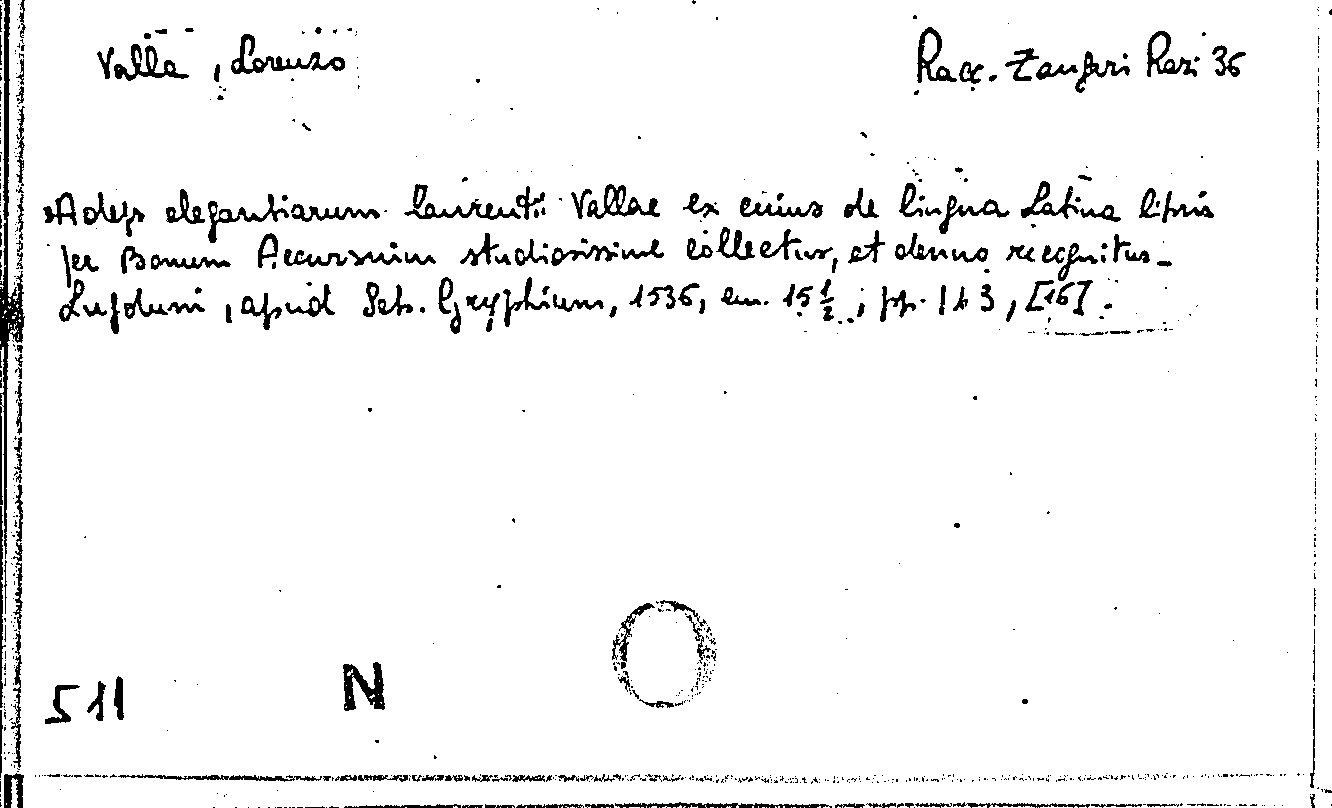 Valla, Lorenzo
Racc. Zanferi Razi 36
Adeps elegantiarum Laurentii Vallae ex eius de lingua Latina libris
per Bonum Accursium studiosissime collectus, et denuo recognitus_
Lugduni, apud Seb. Gryphium, 1536, cm. 15 1/2; pp. 1 3, [16].
511
N